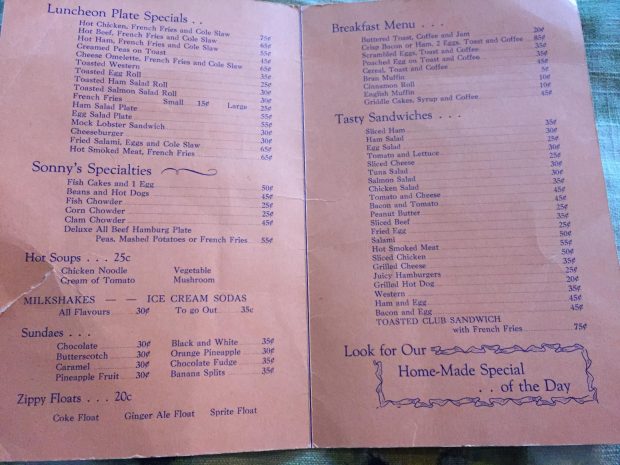 Luncheon Plate Specials . .
Hot Chicken, French Fries and Cole Slaw 75¢
Hot Beef, French Fries and Cole Slaw 65¢
Hot Ham, French Fries and Cole Slaw 65¢
Creamed Peas on Toast 55¢
Cheese Omelette, French Fries and Cole Slaw 45¢
Toasted Western 65¢
Toasted Egg Roll 35¢
Toasted Ham Salad Roll 25¢
Toasted Salmon Salad Roll 30¢
French Fries Small 15¢ Large 25¢
Ham Salad Plate 55¢
Egg Salad Plate 55¢
Mock Lobster Sandwich 55¢
Cheeseburger 30¢
Fried Salami, Eggs and Cole Slaw 65¢
Hot Smoked Meat, French Fries 65¢
Sonny's Specialties
Fish Cakes and 1 Egg 50¢
Beans and Hot Dogs 45¢
Fish Chowder 25¢
Corn Chowder 25¢
Clam Chowder 45¢
Deluxe All Beef Hamburg Plate
Peas, Mashed Potatoes or French Fries 55¢
Hot Soups . . . 25c
Chicken Noodle Vegetable
Cream of Tomato Mushroom
MILKSHAKES — — ICE CREAM SODAS
All Flavours 30¢ To go Out 35c
Sundaes . . .
Chocolate 30¢ Black and White 35¢
Butterscotch 30¢ Orange Pineapple 30¢
Caramel 30¢ Chocolate Fudge 35¢
Pineapple Fruit 30¢ Banana Splits 35¢
Zippy Floats . . . 20c
Coke Float Ginger Ale Float Sprite Float
Breakfast Menu . . .
Buttered Toast, Coffee and Jam 20¢
Crisp Bacon or Ham, 2 Eggs, Toast and Coffee 85¢
Scrambled Eggs, Toast and Coffee 35¢
Poached Egg on Toast and Coffee 35¢
Cereal, Toast and Coffee 45¢
Bran Muffin 5¢
Cinnamon Roll 10¢
English Muffin 10¢
Griddle Cakes, Syrup and Coffee 45¢
Tasty Sandwiches . . .
Sliced Ham 35¢
Ham Salad 30¢
Egg Salad 25¢
Tomato and Lettuce 30¢
Sliced Cheese 25¢
Tuna Salad 30¢
Salmon Salad 30¢
Chicken Salad 35¢
Tomato and Cheese 50¢
Bacon and Tomato 45¢
Peanut Butter 45¢
Sliced Beef 25¢
Fried Egg 35¢
Salami 25¢
Hot Smoked Meat 50¢
Sliced Chicken 55¢
Grilled Cheese 50¢
Juicy Hamburgers 35¢
Grilled Hot Dog 25¢
Western 20¢
Ham and Egg 45¢
Bacon and Egg 45¢
TOASTED CLUB SANDWICH
with French Fries 75¢
Look for Our
Home-Made Special
. . of the Day